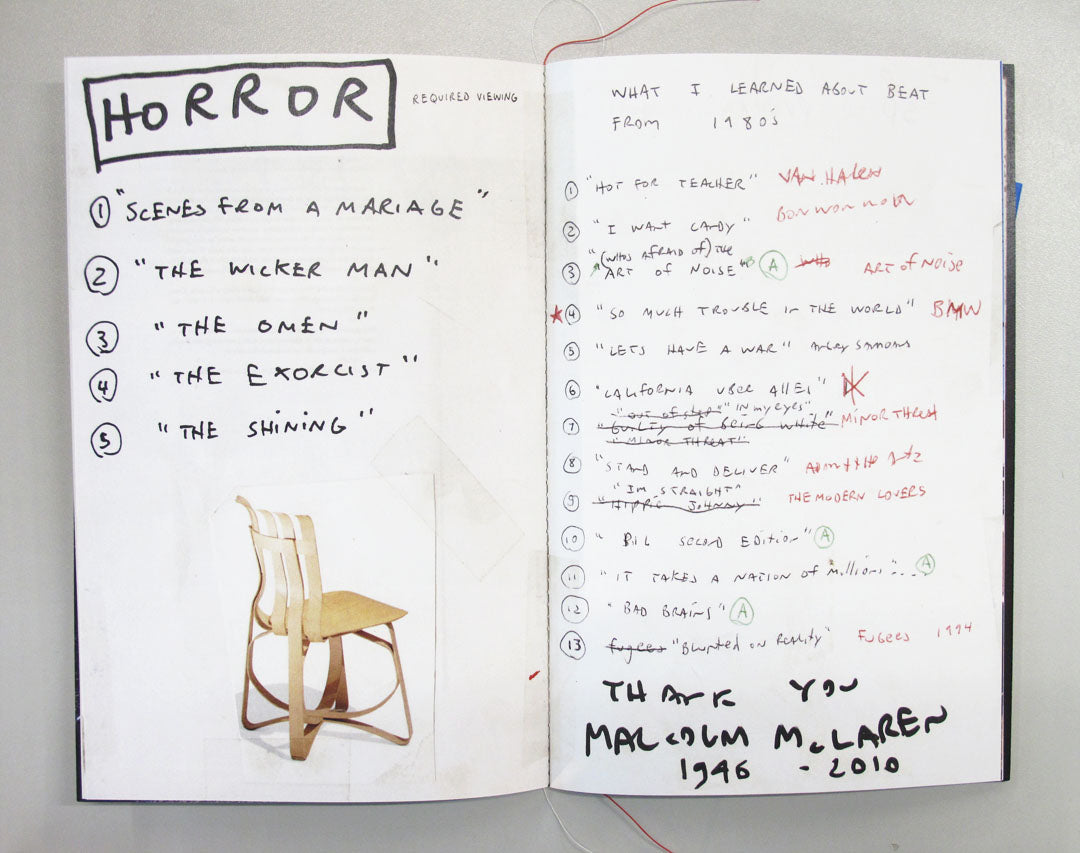 HORROR
REQUIRED VIEWING
① "SCENES FROM A MARIAGE"
② "THE WICKER MAN"
③ "THE OMEN"
④ "THE EXORCIST"
⑤ "THE SHINING"
WHAT I LEARNED ABOUT BEAT
FROM 1980's
① "HOT FOR TEACHER" VAN HALEN
② "I WANT CANDY" BOW WOW WOW
"(WHOS AFRAID OF) THE
③ ART OF NOISE" A ART OF NOISE
④ "SO MUCH TROUBLE IN THE WORLD" BMW
⑤ "LETS HAVE A WAR" ANGRY SAMOANS
⑥ "CALIFORNIA UBER ALLES" DK
"OUT OF STEP" "IN MY EYES"
⑦ "GUILTY OF BEING WHITE" MINOR THREAT
"MINOR THREAT"
⑧ "STAND AND DELIVER"
"IM STRAIGHT"
⑨ "HIPPIE JOHNNY" THE MODERN LOVERS
⑩ "PIL SECOND EDITION" A
⑪ "IT TAKES A NATION OF MILLIONS".... A
⑫ "BAD BRAINS" A
⑬ fugees "BLUNTED ON REALITY" FUGEES 1994
THANK YOU
MALCOLM McLAREN
1946 - 2010